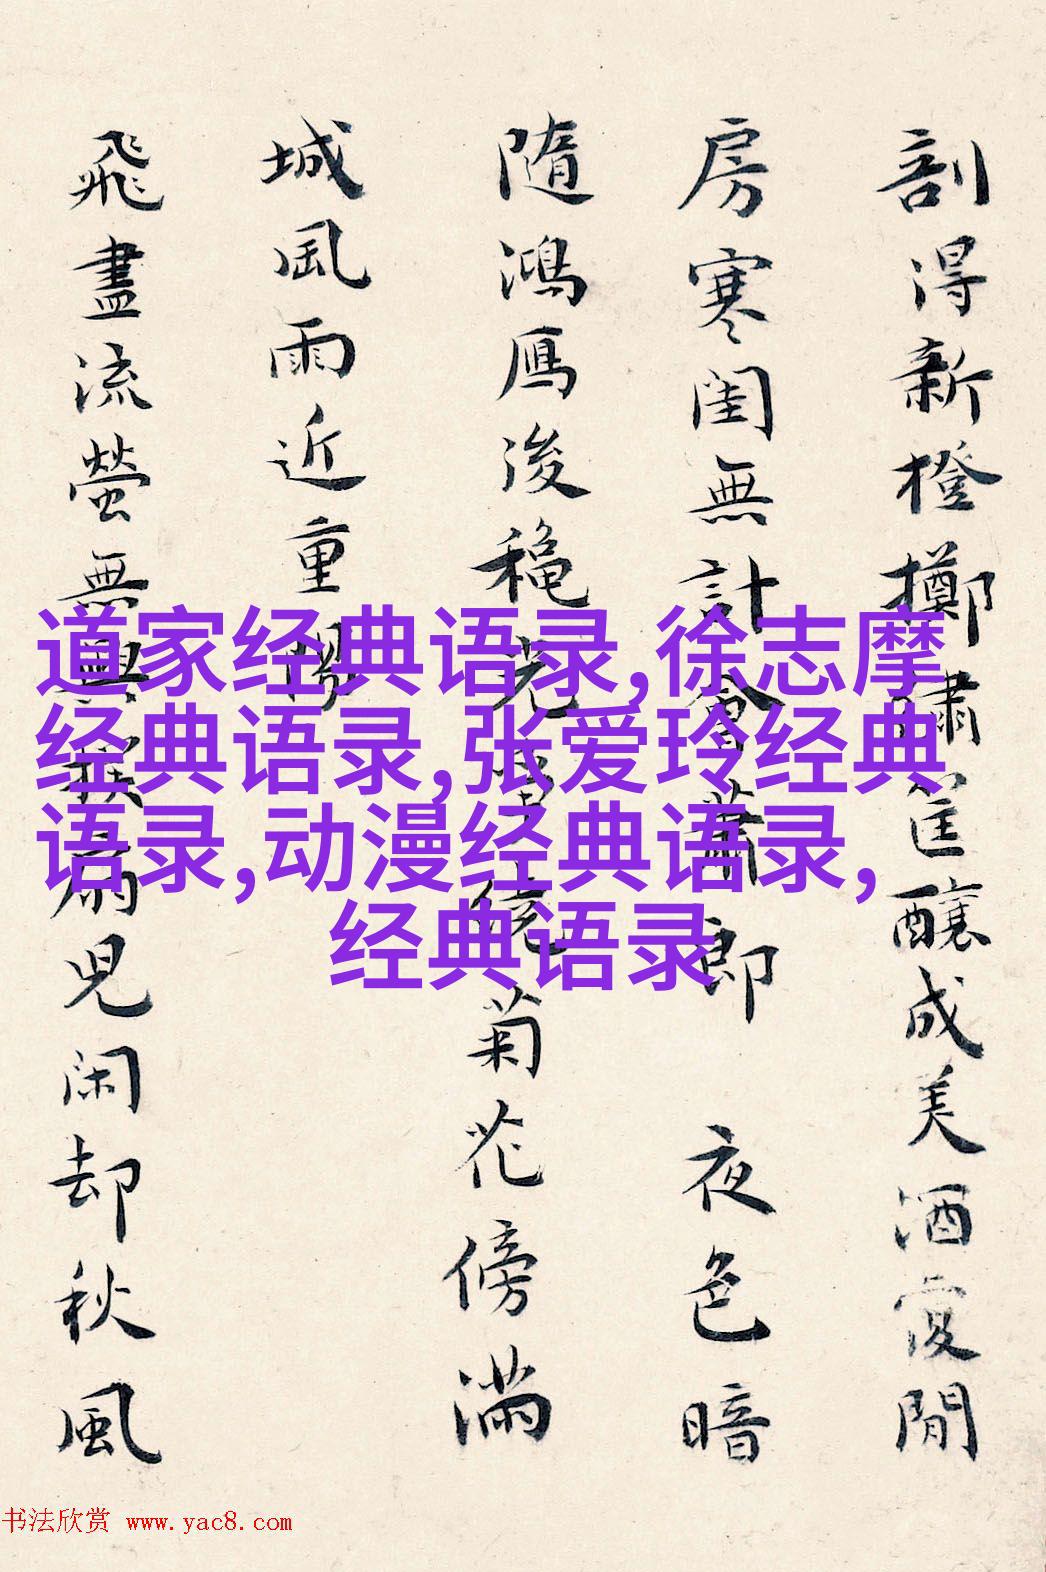 剖得新橙擲繡筐釀成美酒閒
房寒閨無計會蕭郎 夜色暗
隨鴻鴈後穐光繞菊花傍滿
城風雨近重陽
飛盡流螢無興撲扇兒閑却秋風
道家经典语录,徐志摩
经典语录,张爱玲经典
语录,动漫经典语录,
经典语录
书法欣赏 www.yac8.com